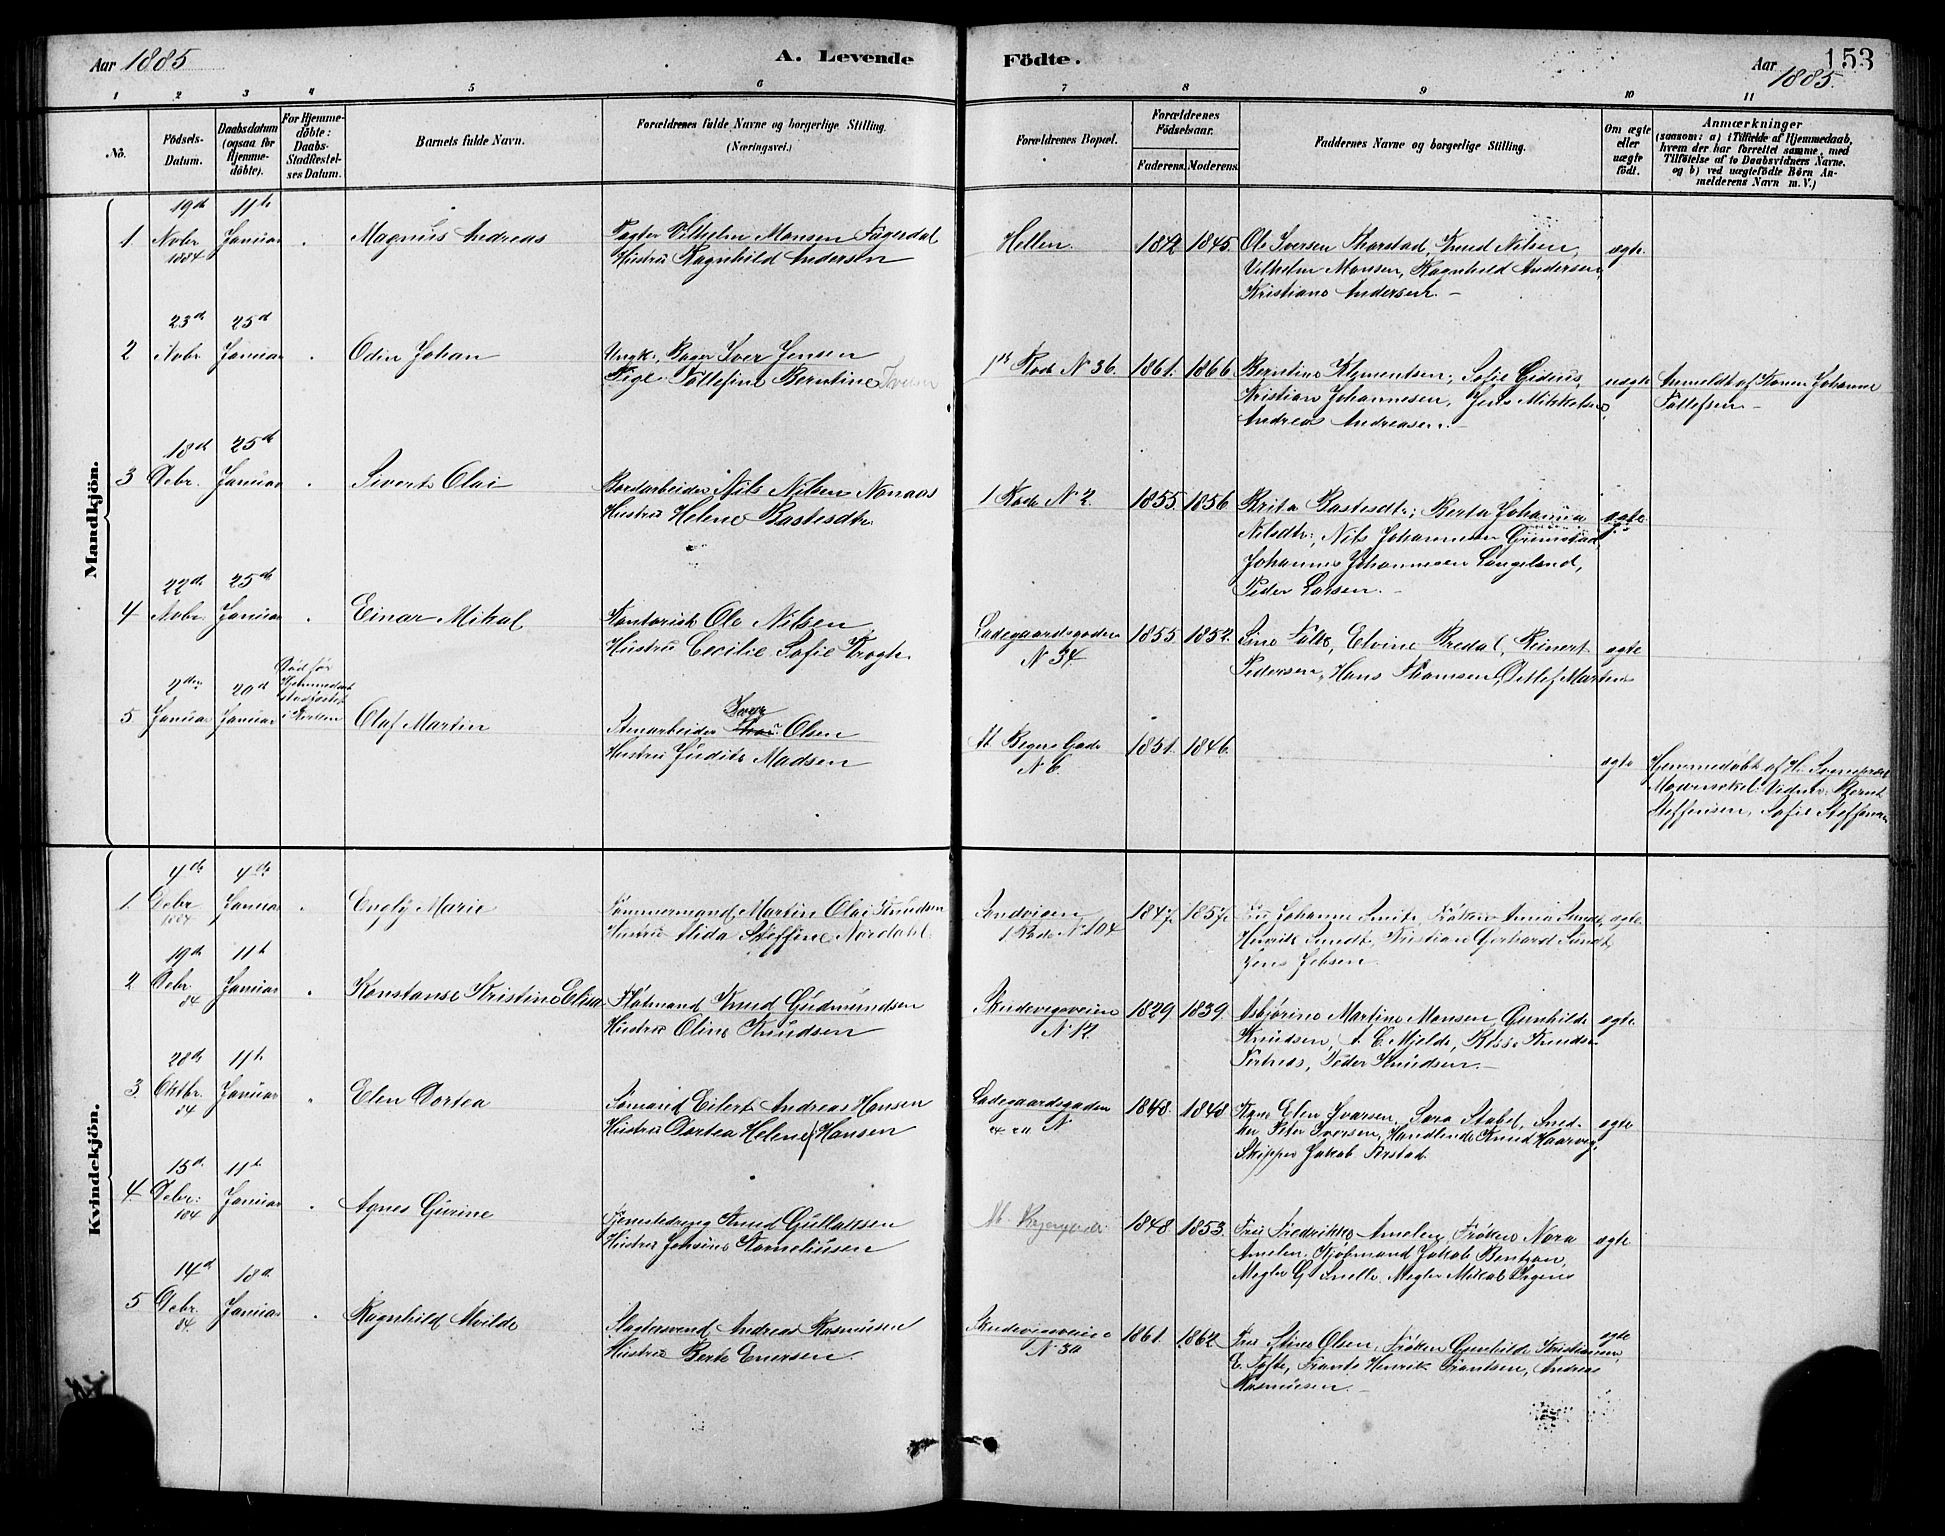 Aar 1885
A. Levende
Födte.
Aar 1885.
153
1 2 3 4 5 6 7 8 9 10 11
No.
Födsels-Datum.
Daabsdatum (ogsaa for Hjemmedöbte).
For Hjemmedöbte: Daabs-Stadfestelses Datum.
Barnets fulde Navn.
Forældrenes fulde Navne og borgerlige Stilling.
(Næringsvei.)
Forældrenes Bopæl.
Forældrenes Födselsaar.
Faderens. Moderens.
Faddernes Navne og borgerlige Stilling.
Om ægte eller uægte födt.
Anmærkninger
(saasom: a) i Tilfælde af Hjemmedaab, hvem der har forrettet samme, med Tilföielse af to Daabsvidners Navne, og b) ved uægtefödte Börn Anmelderens Navn m. V.)
Mandkjön.
1 19d Novbr 1884 11te Januar Magnus Andreas
Vilhelm Monsen Fagerdal
Hustru Ragnhild Andersen
Hellen. 1842 1845.
Ole Iversen Tharstad, Knud Nilsen,
Vilhelm Monsen, Ragnhild Andersen,
Kristiane Andersen. –
ægte.
2 23d Novbr 25d Januar Odin Johan
Ungk. Bager Iver Jensen
Pige Tollefine Berntine Iversen
1ste Rode N 36. 1861. 1866
Berntine Klementsen, Sofie Gidius,
Kristian Johannesen, Jens Mikkelsen,
Andreas Andreasen. –
uægte
Anmeldt af Konen Johanne
Tollefsen –
3 18d Debr. 25d Januar Sivert Olai
Bordarbeider Nils Nilsen Nonaas
Hustru Helene Bastesdtr
1 Rode N 2. 1855. 1856
Brita Bastesdtr, Berta Johanna
Nilsdtr, Nils Johannesen Grimstad,
Johannes Johannesen Langeland,
Peder Larsen. –
ægte
4 22d Novbr. 25d Januar Einar Mikal
Kontorist Ole Nilsen
Hustru Cecilie Sofie Krogh.
Ladegaardsgaden N 34 1855. 1852.
Sine Falk, Elvine Bredal, Reinert
Pedersen, Hans Thomsen, Detlef Martens
ægte
5 2den Januar 20d Januar
Død før Hjemmedaab stadfæstet i Kirken
Olaf Martin
Stenarbeider Iver Olsen
Hustru Judite Madsen
N 6. 1851. 1846.
ægte
Hjemmedøbt af Hr. Sognepræst
Vidner: Bernt
Steffensen, Sofie Steffensen
Kvindekjön.
1. 4d Debr 1884 4de Januar Engly Marie
Tømmermand Martin Olai Knudsen
Hustru Alida Steffine Nordahl.
Sandvigen 1 Rode N 104 1847. 1857.
Fru Johanne Smit, Frøken Anna Sundt,
Henrik Sundt, Kristian Gerhard Sundt,
Jens Jebsen
ægte
2 19d Debr 84 11te Januar Konstanse Kristine Elisa
Flötmand Knud Gudmundsen
Hustru Oline Knudsen
Skudevigsveien N 12. 1829 1839.
Asbjørine Martine Monsen, Gunhilde
Knudsen, A. C. Mjelde, Knudsen
Peder Knudsen. –
ægte
3. 28d Oktbr. 84 11te Januar Elen Dortea
Sømand Eilert Andreas Hansen
Hustru Dortea Helene Hansen
Ladegaardsgaden N 1848. 1848.
Elen Ivarsen, Sara Stabel, Sned-
ker Peter Iversen, Handlende Knud Haarvig,
Skipper Jakob Arstad.
ægte
4. 15d Debr: 84 11te Januar Agnes Gurine
Knud Gullaksen
Hustru Johsine Korneliusen
1848 1853.
Fru Fredrikke Amelen, Frøken Nora
Amelen, Kjøbmand Jakob Bentzon,
Megler G Snelle, Megler Mikal
ægte
5 14d Debr. 84. 18d. Januar Ragnhild Alvilde
Slagtersvend Andreas Rasmussen
Hustru Berte Enersen.
Skudevigsveien N 30 1861. 1862
Fru Stine Olsen, Frøken Gunhilde Kristiansen,
E. Tofte, Frants Henrik Frantsen, Andreas
Rasmussen. –
ægte